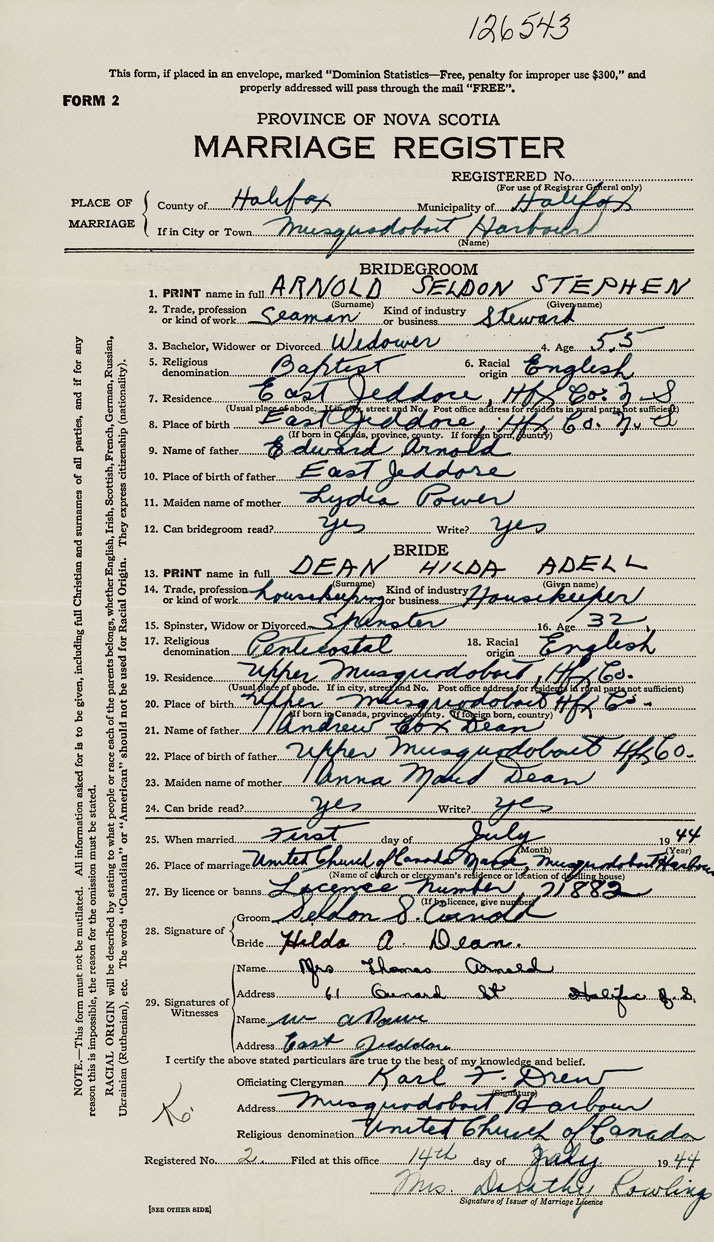 126543
This form, if placed in an envelope, marked "Dominion Statistics—Free, penalty for improper use $300," and
properly addressed will pass through the mail "FREE".
FORM 2
PROVINCE OF NOVA SCOTIA
MARRIAGE REGISTER
REGISTERED No.
(For use of Registrar General only)
PLACE OF MARRIAGE
County of Halifax Municipality of Halifax
If in City or Town Musquodoboit Harbour
(Name)
BRIDEGROOM
1. PRINT name in full ARNOLD SELDON STEPHEN
(Surname) (Given name)
2. Trade, profession or kind of work Seaman Kind of industry or business Steward
3. Bachelor, Widower or Divorced Widower 4. Age 55
5. Religious denomination Baptist 6. Racial origin English
7. Residence East Jeddore, Hfx Co. N.S
(Usual place of abode. If in city, street and No. Post office address for residents in rural parts not sufficient)
8. Place of birth East Jeddore, Hfx Co. N.S
(If born in Canada, province, county. If foreign born, country)
9. Name of father Edward Arnold
10. Place of birth of father East Jeddore
11. Maiden name of mother Lydia Power
12. Can bridegroom read? yes Write? yes
BRIDE
13. PRINT name in full DEAN HILDA ADELL
(Surname) (Given name)
14. Trade, profession or kind of work housekeeping Kind of industry or business Housekeeper
15. Spinster, Widow or Divorced Spinster 16. Age 32
17. Religious denomination Penticostal 18. Racial origin English
19. Residence Upper Musquodoboit, Hfx Co.
(Usual place of abode. If in city, street and No. Post office address for residents in rural parts not sufficient)
20. Place of birth Upper Musquodoboit Hfx Co.
(If born in Canada, province, county. If foreign born, country)
21. Name of father Andrew Cox Dean
22. Place of birth of father Upper Musquodoboit Hfx Co.
23. Maiden name of mother Anna Maud Dean
24. Can bride read? yes Write? yes
25. When married First day of July 1944
(Month) (Year)
26. Place of marriage United Church of Canada Manse, Musquodoboit Harbour
(Name of church or clergyman's residence or location of dwelling house)
27. By licence or banns License Number, 71882
(If by licence, give number)
28. Signature of
Groom Seldon S. Arnold
Bride Hilda A. Dean.
29. Signatures of Witnesses
Name Mrs Thomas Arnold
Address 61 Cunard St Halifax N.S.
Name
Address East Jeddore
I certify the above stated particulars are true to the best of my knowledge and belief.
Officiating Clergyman Karl F. Drew
(Signature)
Address Musquodoboit Harbour
Religious denomination United Church of Canada
Registered No. 2. Filed at this office 14th day of July 1944
Mrs. Dorothy Rowlings
Signature of Issuer of Marriage Licence
[SEE OTHER SIDE]
NOTE.—This form must not be mutilated. All information asked for is to be given, including full Christian and surnames of all parties, and if for any
reason this is impossible, the reason for the omission must be stated.
RACIAL ORIGIN will be described by stating to what people or race each of the parents belongs, whether English, Irish, Scottish, French, German, Russian,
Ukrainian (Ruthenian), etc. The words "Canadian" or "American" should not be used for Racial Origin. They express citizenship (nationality).